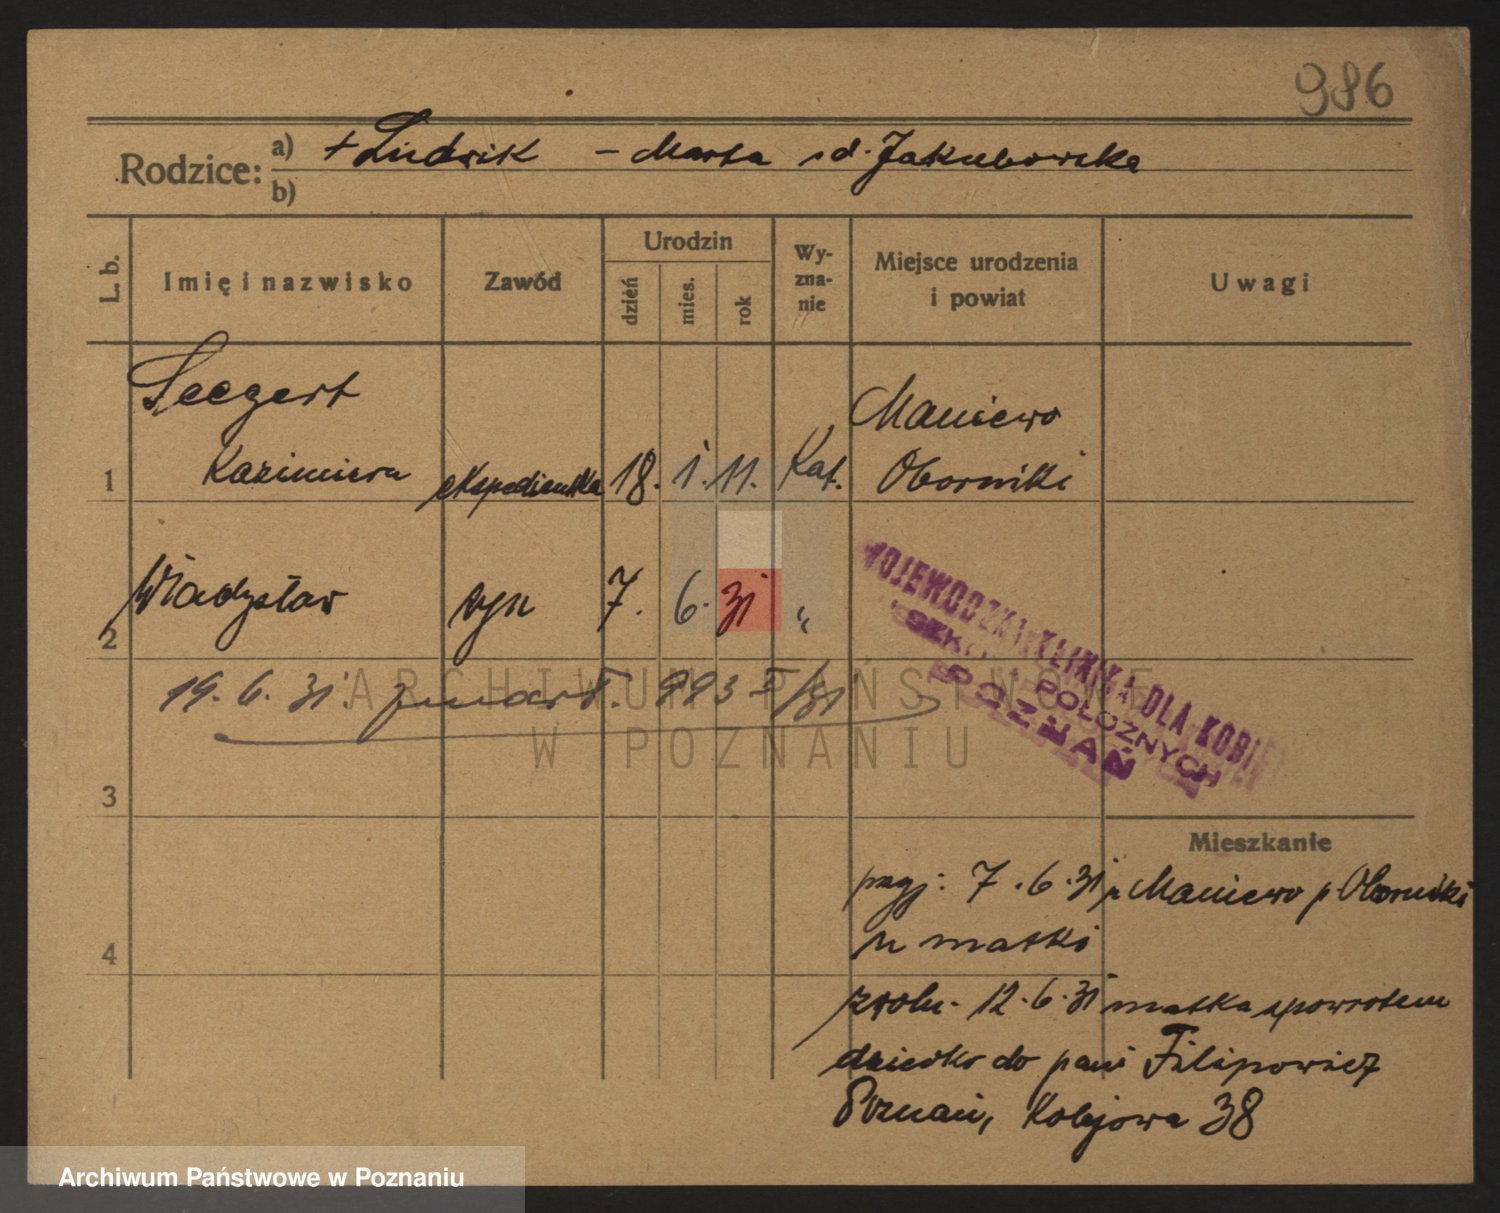 986
Rodzice: a) + Ludwik – Marta z d. Jakubowska
b)
L. b.
Imię i nazwisko
Zawód
Urodzin
dzień
mies.
rok
Wy-
zna-
nie
Miejsce urodzenia
i powiat
Uwagi
Seegert
Maniewo
1 Kazimiera ekspedientka 18. 1. 11. Kat. Oborniki
2 Władysław syn 7. 6. 31 "
WOJEWÓDZKA KLINIKA DLA KOBIET
SZKOŁA POŁOŻNYCH
POZNAŃ
19. 6. 31. zmarł. 993 /31
ARCHIWUM PAŃSTWOWE
W POZNANIU
3
Mieszkanie
przyj: 7. 6. 31 z Maniewo p Oborniki
4 u matki
zwoln. 12. 6. 31 matka spowrotem
dziecko do pani Filipowicz
Poznań, Kolejowa 38
Archiwum Państwowe w Poznaniu